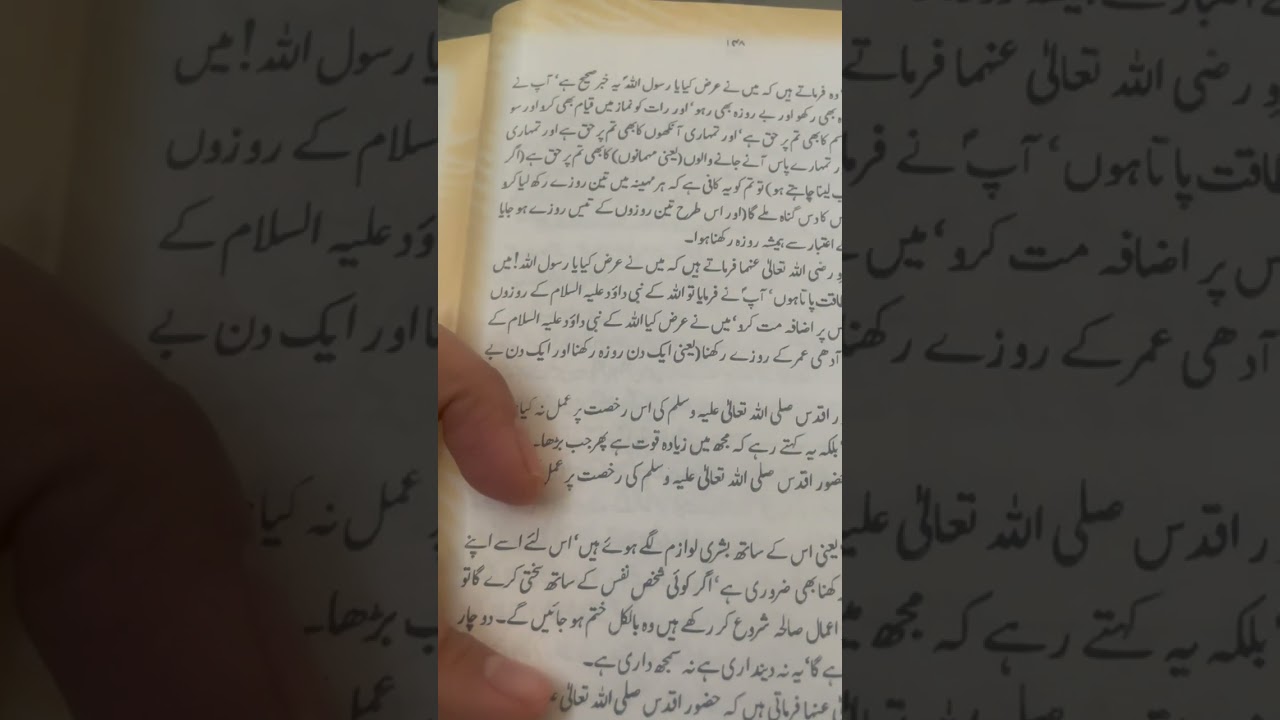 ۱۴۸
وہ فرماتے ہیں کہ میں نے عرض کیا یا رسول اللہؐ یہ خبر صحیح ہے‘ آپ نے
بھی رکھو اور بے روزہ بھی رہو‘ اور رات کو نماز میں قیام بھی کرو اور سو
کا بھی تم پر حق ہے‘ اور تمہاری آنکھوں کا بھی تم پر حق ہے اور تمہاری
تمہارے پاس آنے جانے والوں (یعنی مہمانوں) کا بھی تم پر حق ہے (اگر
لینا چاہتے ہو) تو تم کو یہ کافی ہے کہ ہر مہینہ میں تین روزے رکھ لیا کرو
کا دس گناہ ملے گا (اور اس طرح تین روزوں کے تیس روزے ہو جایا
اعتبار سے ہمیشہ روزہ رکھنا ہوا۔
رضی اللہ تعالیٰ عنہما فرماتے ہیں کہ میں نے عرض کیا یا رسول اللہ! میں
طاقت پاتا ہوں‘ آپؐ نے فرمایا تو اللہ کے نبی داؤد علیہ السلام کے روزوں
پر اضافہ مت کرو‘ میں نے عرض کیا اللہ کے نبی داؤد علیہ السلام کے
آدھی عمر کے روزے رکھنا (یعنی ایک دن روزہ رکھنا اور ایک دن بے
اقدس صلی اللہ تعالیٰ علیہ وسلم کی اس رخصت پر عمل نہ کیا
بلکہ یہ کہتے رہے کہ مجھ میں زیادہ قوت ہے پھر جب بڑھا۔
حضور اقدس صلی اللہ تعالیٰ علیہ وسلم کی رخصت پر عمل
یعنی اس کے ساتھ بشری لوازم لگے ہوئے ہیں‘ اس لئے اسے اپنے
رکھنا بھی ضروری ہے‘ اگر کوئی شخص نفس کے ساتھ سختی کرے گا تو
اعمال صالحہ شروع کر رکھے ہیں وہ بالکل ختم ہو جائیں گے۔ دو چار
گا‘ یہ نہ دینداری ہے نہ سمجھ داری ہے۔
عنہا فرماتی ہیں کہ حضور اقدس صلی اللہ تعالیٰ